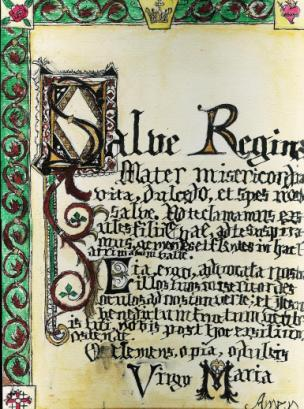 Salve Regina
Mater misericordia
vita, dulcedo, et spes nos
salve. Ad te clamamus ex
ules filii Hae, ad te suspira
mus, gementes et flentes in hac
valle.
Eia, ergo, advocata nost
illos tuos misericordes
oculos ad nos converte; et Jesu
benedictum fructum ventr
is tui, nobis post hoc exsilium
ostende
O clemens, o pia, o dulcis
Virgo Maria
Amen